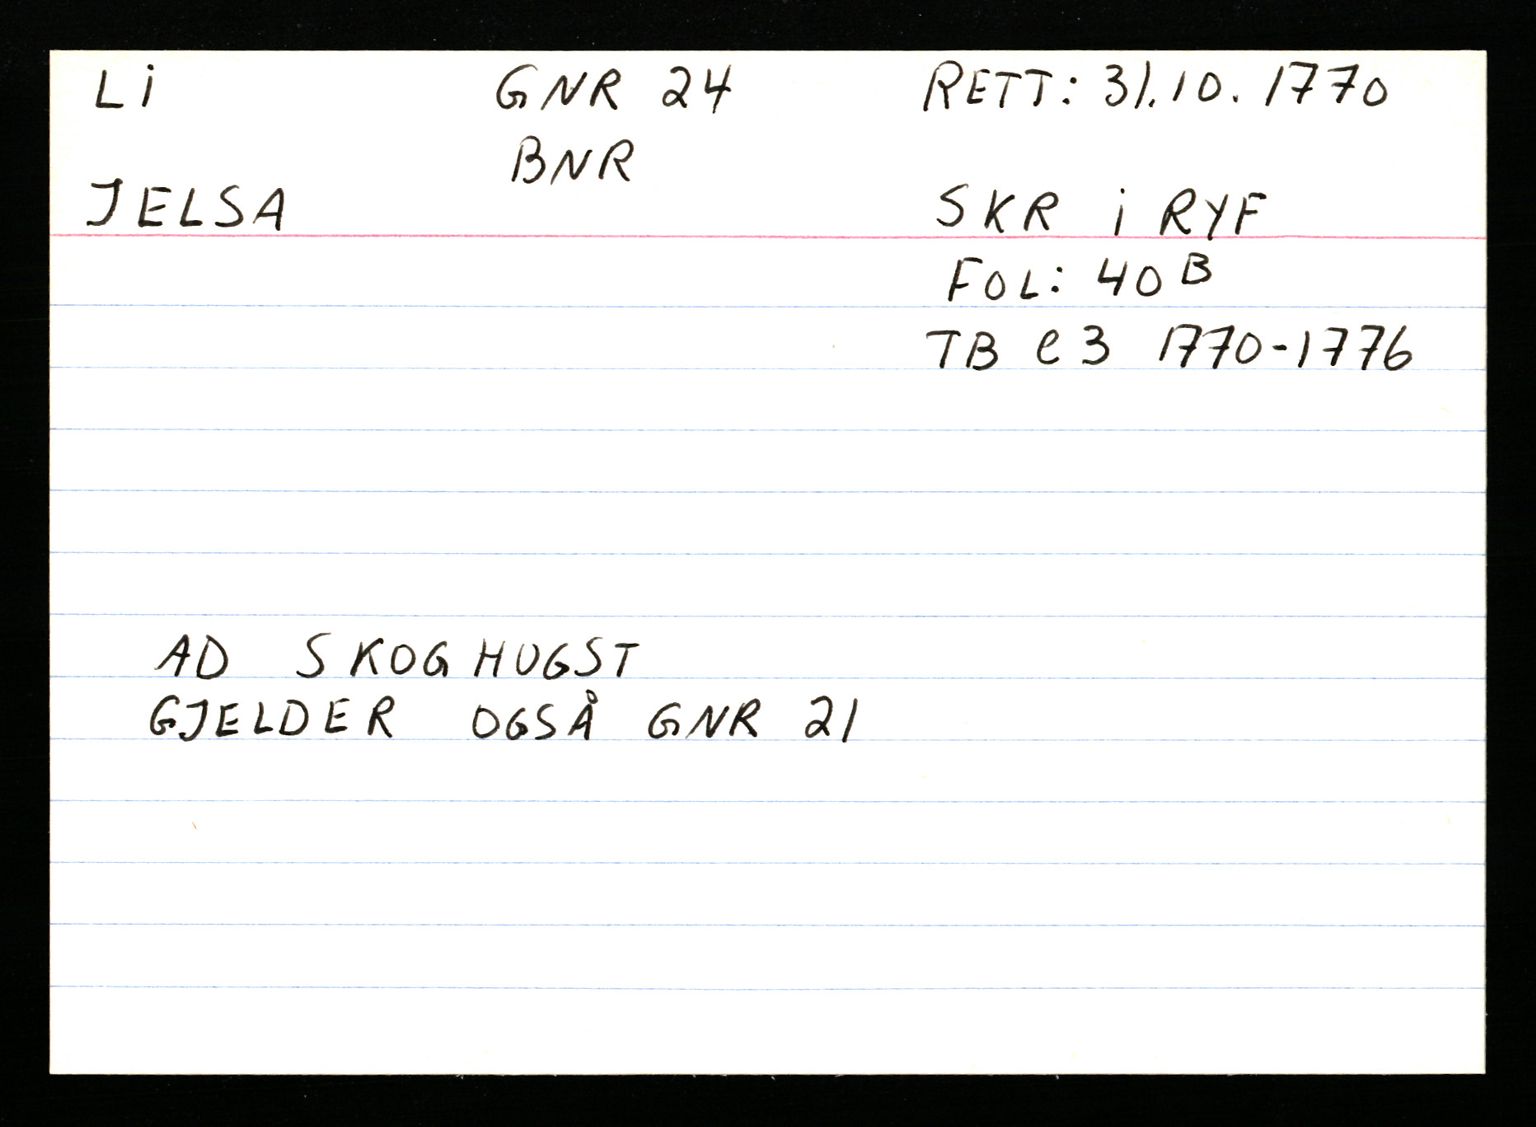 Li GNR 24 RETT: 31.10.1770
BNR
JELSA SKR i RYF
FOL: 40 B
TB C 3 1770-1776
AD SKOGHUGST
GJELDER OGSÅ GNR 21